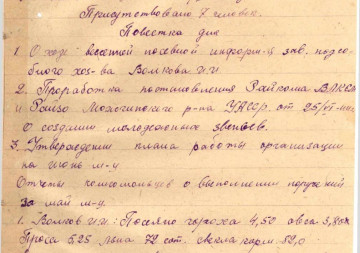 Присутствовало 7 человек.
Повестка дня
1. О ходе весенней посевной информ-я зав. подсо-
бного хоз-ва Волкова И.И.
2. Проработка постановления Райкома ВЛКСМ
и Райзо Можгинского р-на УАССР, от 25/VI-
О создании молодежных звеньев.
3. Утверждении плана работы организации
на июнь м-ц
Отчеты комсомольцев о выполнении поручений
за май м-ц.
1. Волков И.И.: Посеяно гороха 4,50 овса 3,80
Проса 5,25 льна 72 сот.